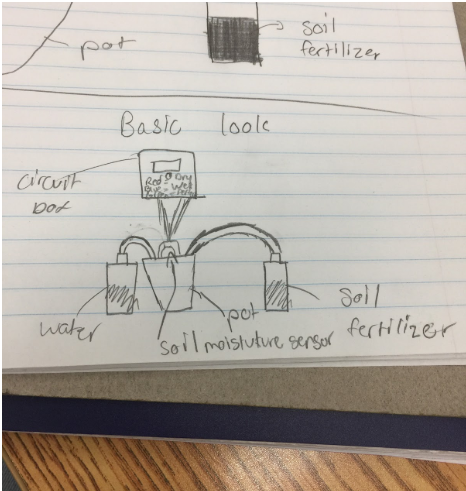 pot
soil
fertilizer
Basic look
circuit
box
Red = Dry
Blue - Wet
water
pot
soil moistuture sensor
Soil
fertilizer